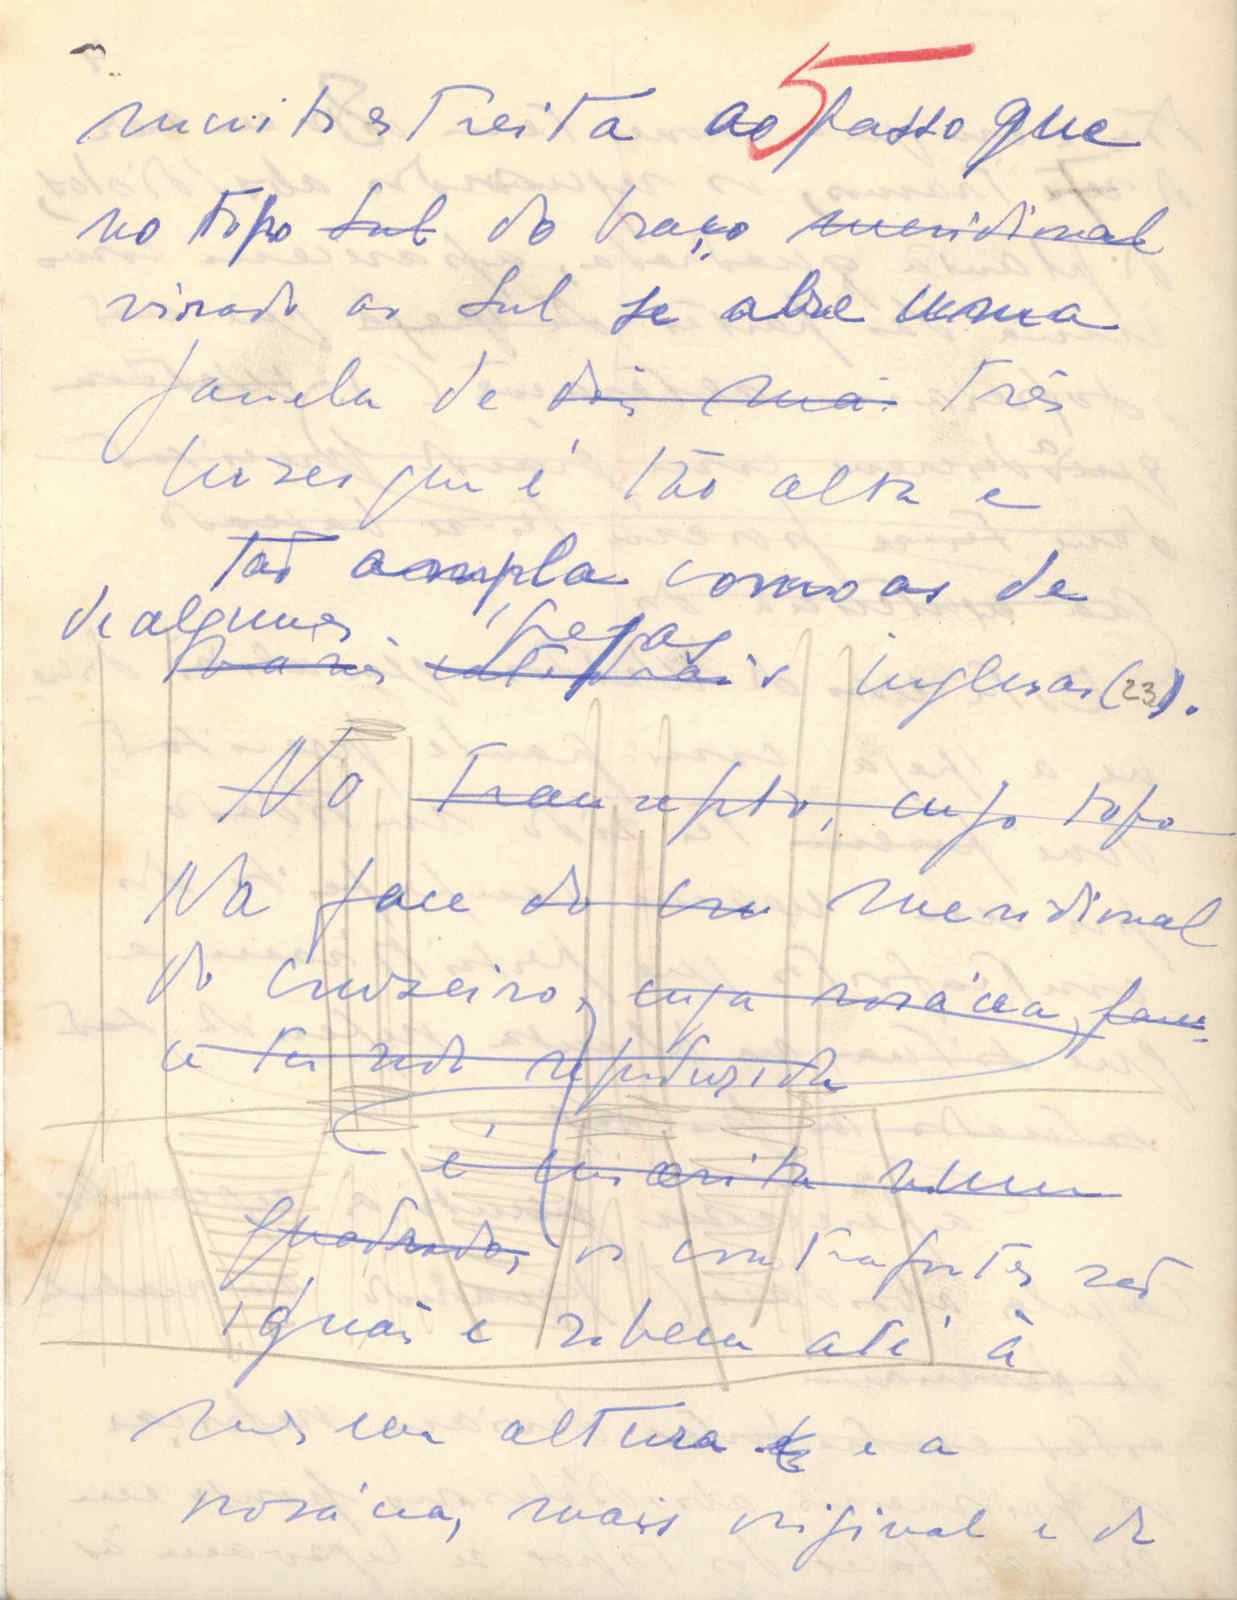 muito estreita ao passo que
no topo sul do braço meridional
virado ao sul se abre uma
janela de dois mai três
luzes que é tão alta e
tão ampla como as de
de algumas segas
varias catedrais inglesas (23).
No transepto, cujo topo
Na face do cru meridional
do cruzeiro, cuja rosácea fom
a ter sido reproduzida
é inscrita num
quadrado, os contrafortes são
iguais e sobem até à
mesma altura e a
rosácea, mais original e de